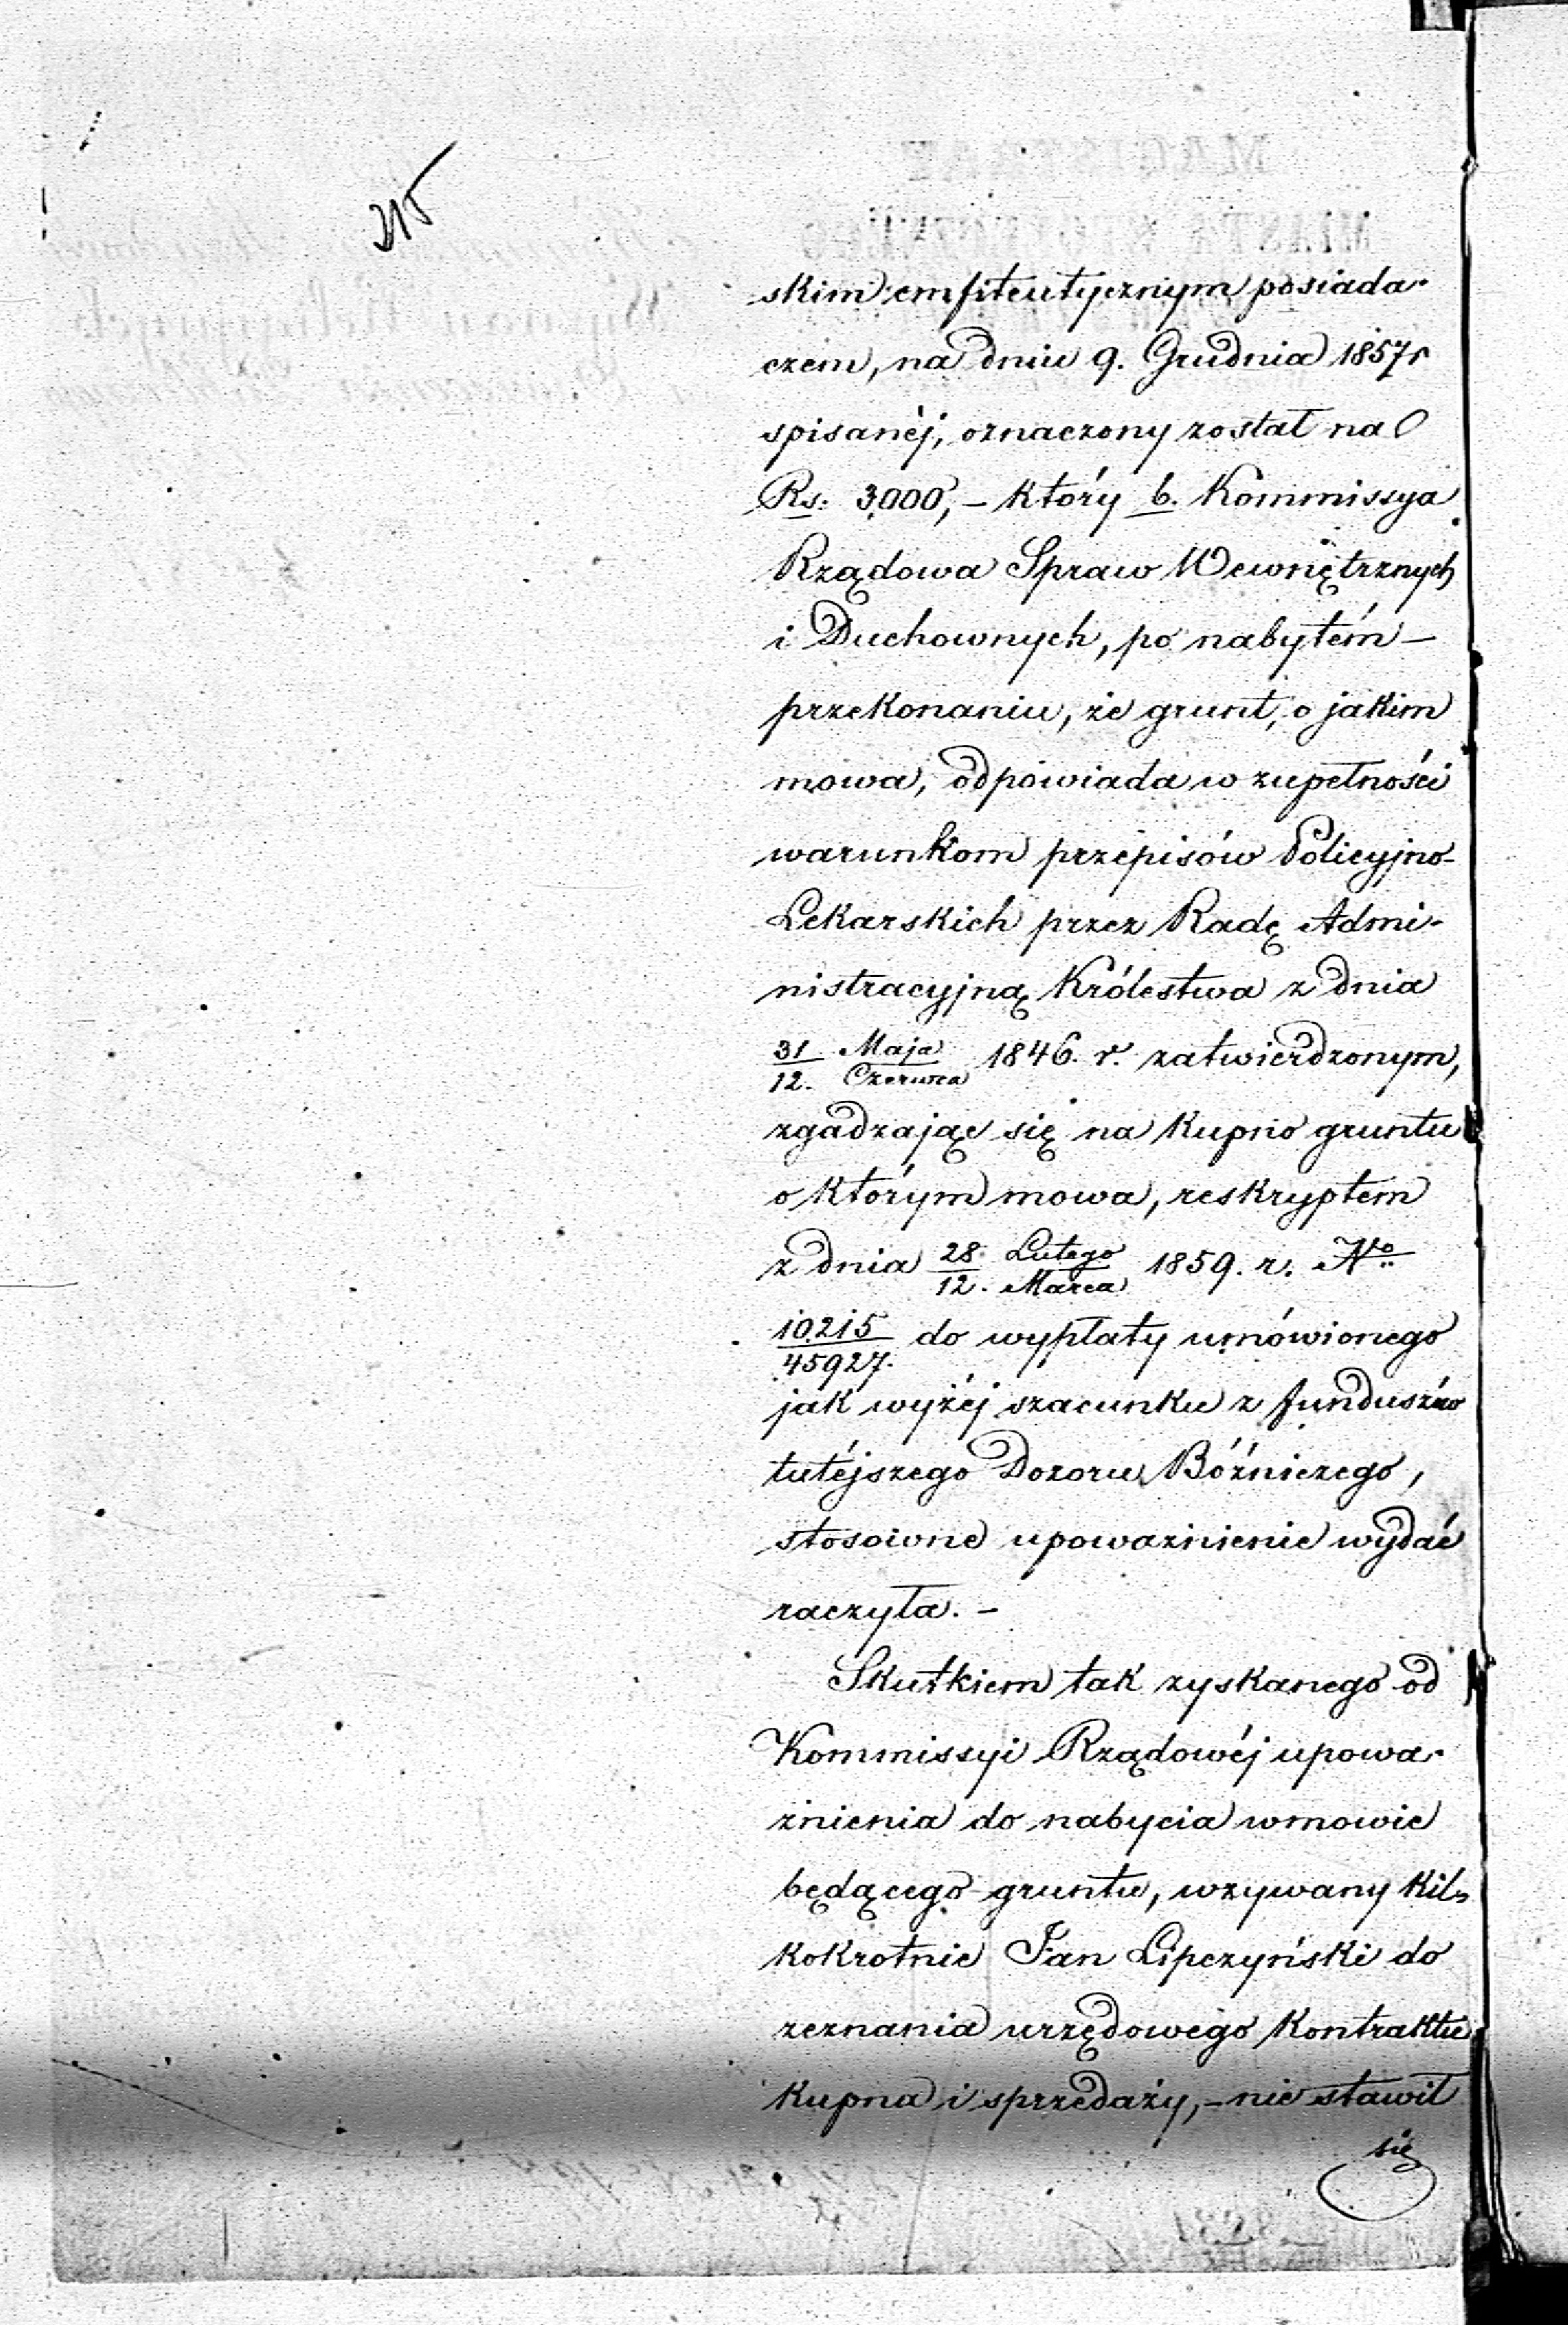 315
skim emfiteutycznym posiada-
czem, na dniu 9. Grudnia 1857 r
spisanéj, oznaczony został na
Rs: 3000, – który b. Kommissya
Rządowa Spraw Wewnętrznych
i Duchownych, po nabytém –
przekonaniu, że grunt, o jakim
mowa, odpowiada w zupełności
warunkom przepisów Policyjno-
Lekarskich przez Radę Admi-
nistracyjną Królestwa z dnia
31/12. Maja/Czerwca 1846. r. zatwierdzonym,
zgadzając się na kupno gruntu
o którym mowa, reskryptem
z dnia 28/12. Lutego/Marca 1859. r. No
10,215/45927. do wypłaty umówionego
jak wyżéj szacunku z funduszów
tutéjszego Dozoru Bóźniczego,
stosowne upoważnienie wydać
raczyła. –
Skutkiem tak zyskanego od
Kommissyi Rządowéj upowa-
żnienia do nabycia wmowie
będącego gruntu, wzywany kil-
kokrotnie Jan Lipczyński do
zeznania urzędowego kontraktu
kupna i sprzedaży, – nie stawił
się